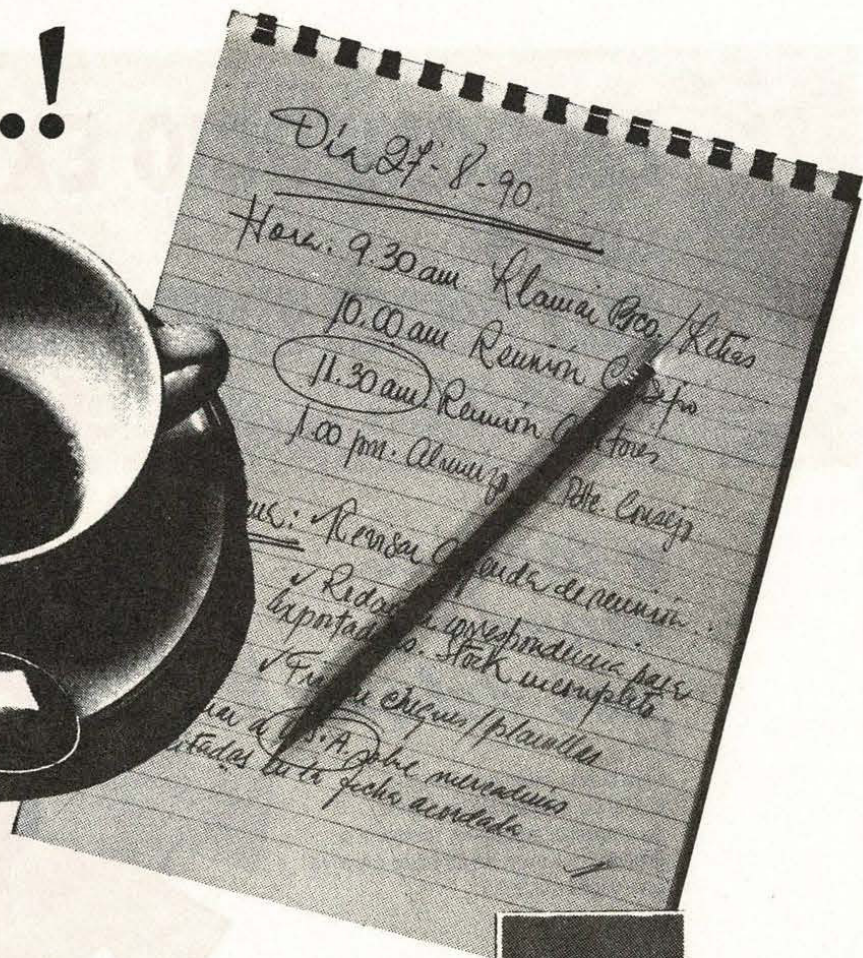 ..!
Día 27-8-90.
Hora: 9.30 am. Llamar Bco./Letras
10.00 am Reunión
11.30 am. Reunión
1.00 pm. Almuerzo Pdte. Consejo
Revisar de reunión..
✓ correspondencia para
Stock incompleto
✓ cheques/planillas
a sobre mercaderías
en la fecha acordada